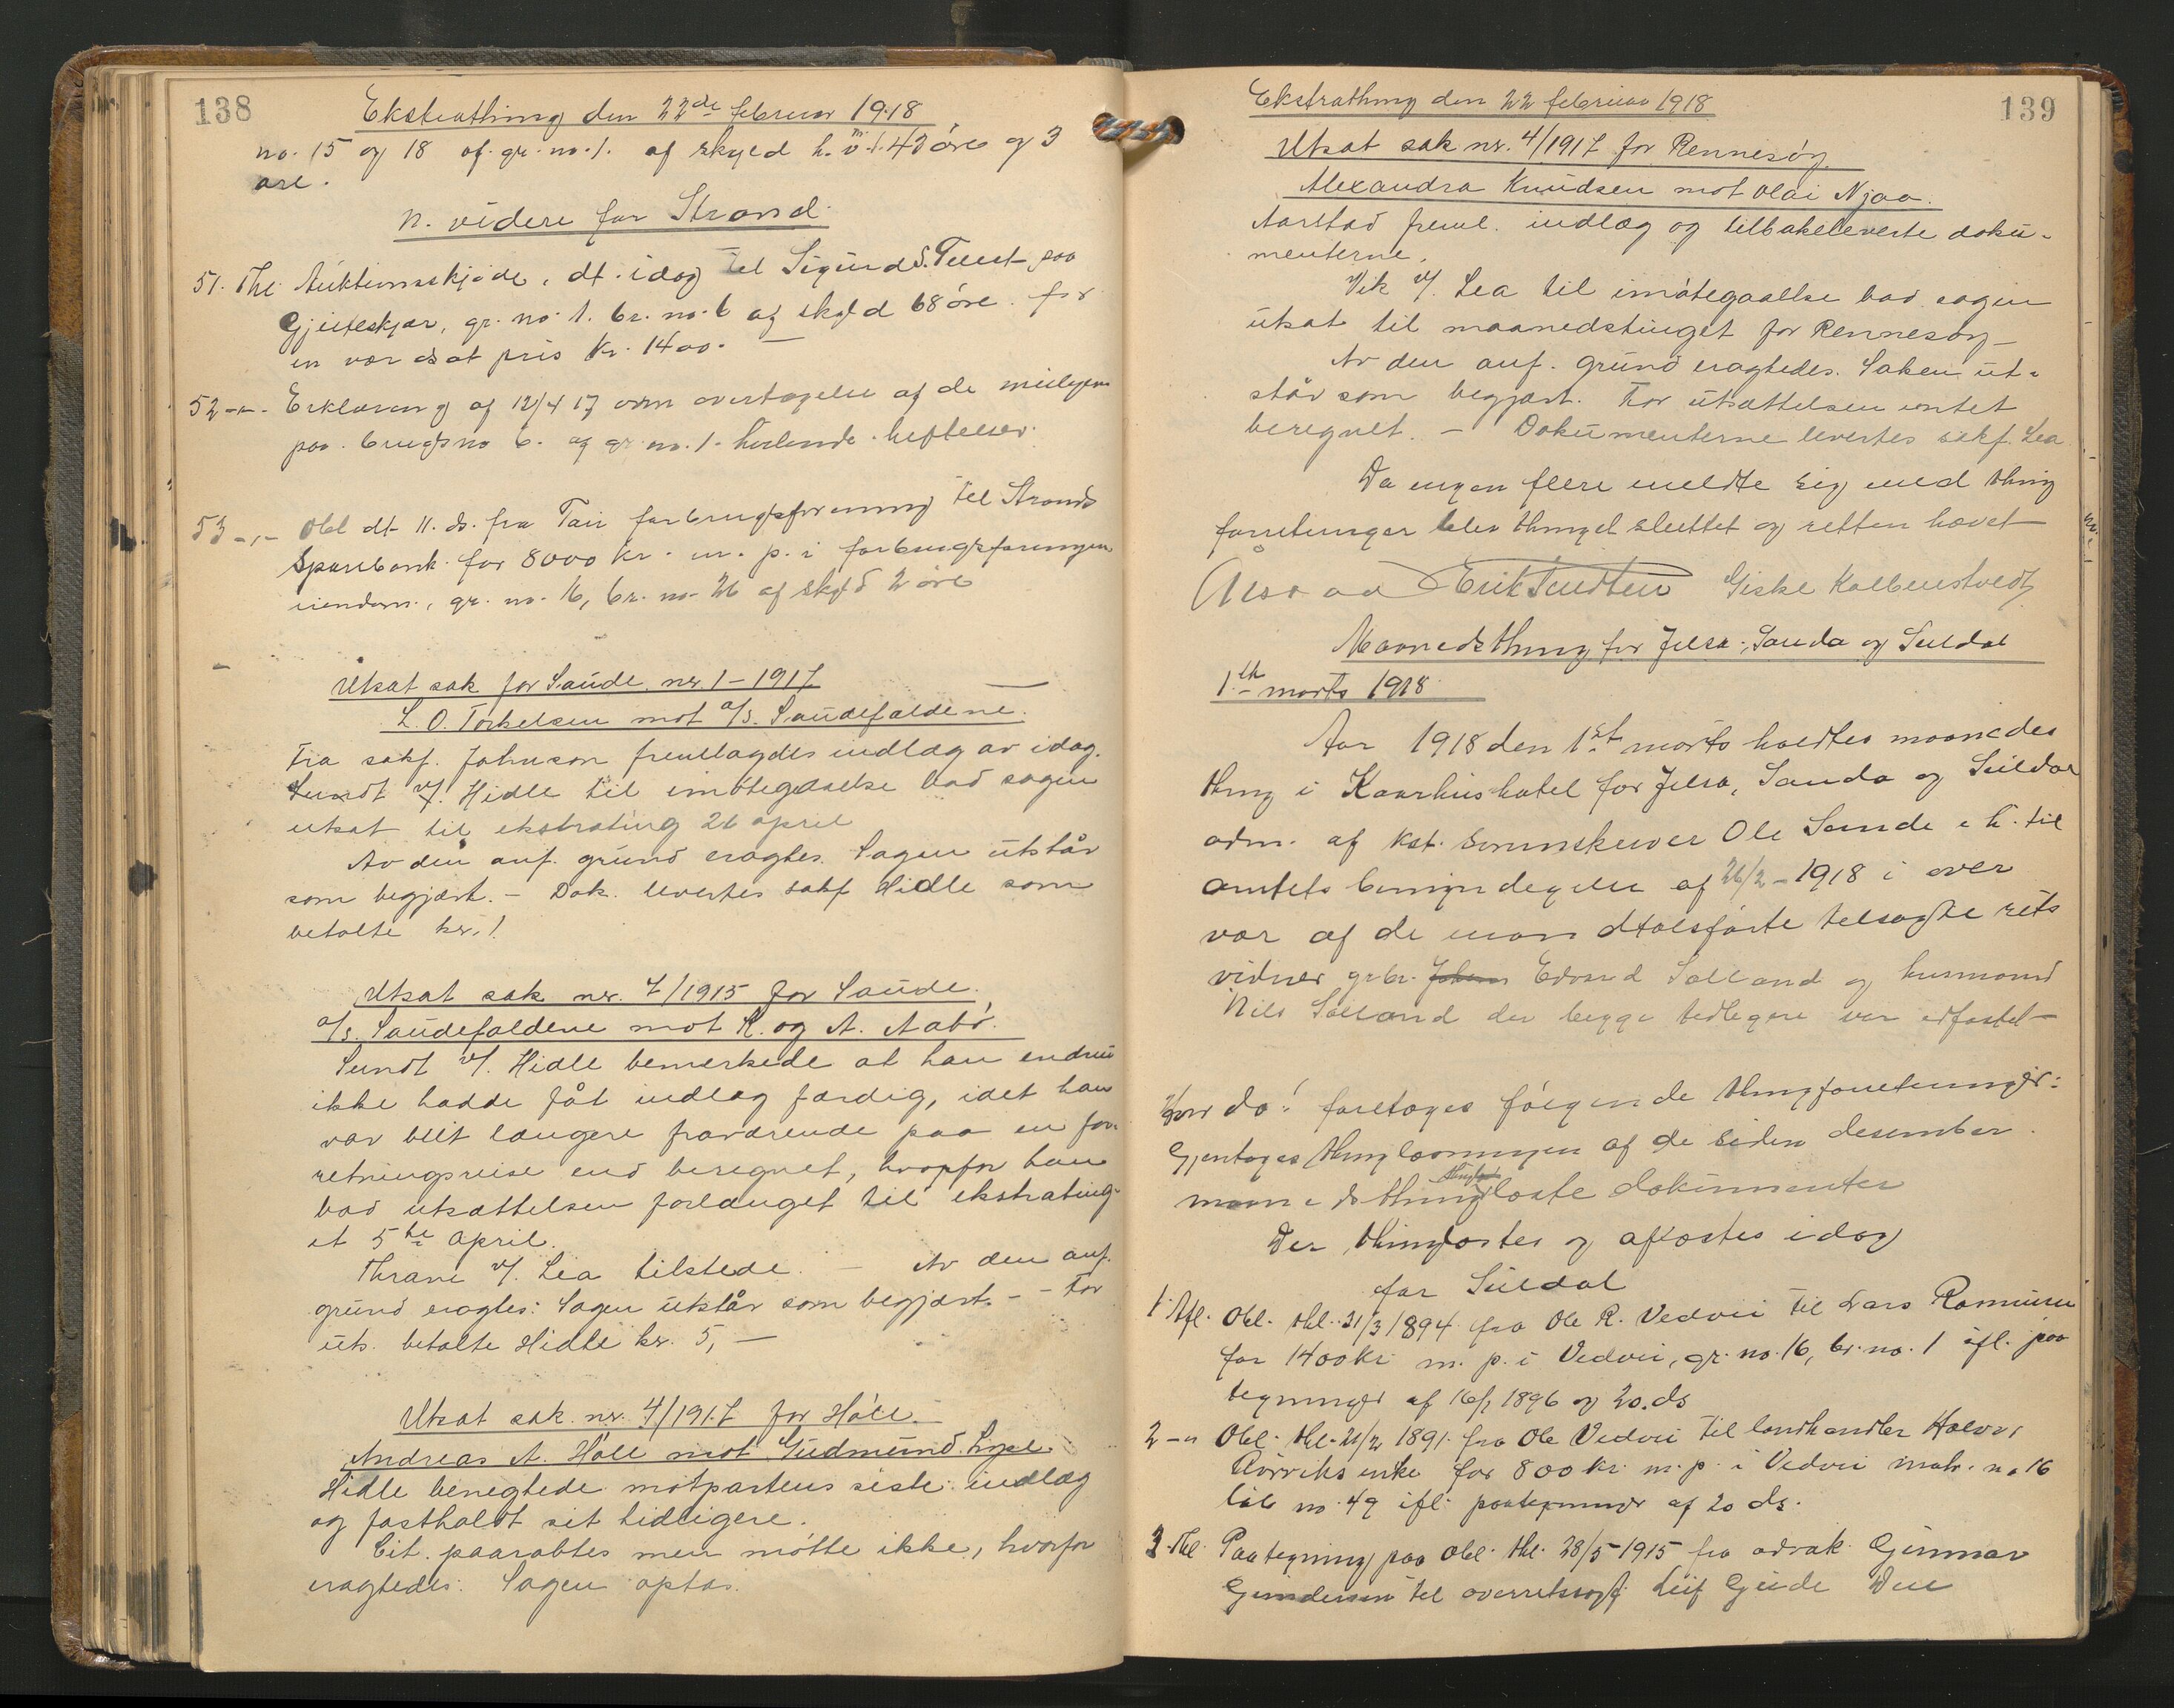 138
Ekstrathing den 22de februar 1918
no. 15 og 18 af gr. no. 1. af skyld h. v. m. 1.43 øre og 3
øre.
N. videre for Strand
51. Thl. Auktionsskjøde, dt. idag til Sigurd S. paa
Gjiteskjær, gr. no. 1. br. no. 6 af skyld 68 øre for
en vær as at pris Kr. 1400. —
52 -"- Erklæring af 12/4 17 om overtagelse af de
paa brugsno 6. af gr. no. 1. heftelser.
53 -"- Obl dt 11. ds. fra Tau forbrugsforening til Strands
Sparebank for 8000 kr. m. p. i forbrugsforeningens
eiendom, gr. no. 16, br. no. 26 af skyld 2 øre
Utsat sak for Saude nr. 1 - 1917
L. O. Torkelsen mot a/s. Saudefaldene.
Fra sakf. Johnson fremlagdes indlæg av idag.
Sundt v/. Hidle til imøtegaaelse bad sagen
utsat til ekstrating 26 april
Av den anf. grund eragtes. Sagen utstår
som begjært. - Dok. levertes sakf Hidle som
betalte kr. 1.
Utsat sak nr. 7/1915 for Saude.
a/s. Saudefaldene mot R. og A. Aabø.
Sundt v/. Hidle bemerkede at han endnu
ikke hadde fåt indlæg færdig, idet han
var blit længere fraværende paa en for-
retningsreise end beregnet, hvorfor han
bad utsættelsen forlænget til ekstrating-
et 5te april.
Thrane v/. Lea tilstede. — Av den anf.
grund eragtes: Sagen utstår som begjært. - - For
uts. betalte Hidle kr. 5, —
Utsat sak nr. 4/1917 for Høle.
Andreas A. Høle mot Gudmund Lyse.
Hidle benegtede motpartens siste indlæg
og fastholdt sit tidligere.
Cit. paaraabtes men møtte ikke, hvorfor
eragtedes: Sagen optas.
139
Ekstrathing den 22 februar 1918
Utsat sak nr. 4/1917 for Rennesøy.
Alexandra Knudsen mot Olai Njaa.
Aarstad freml. indlæg og tilbakeleverte doku-
menterne.
Vik v/. Lea til imøtegaaelse bad sagen
utsat til maanedstinget for Rennesøy —
Av den anf. grund eragtedes. Saken ut-
står som begjært. For utsættelsen intet
beregnet. — Dokumenterne levertes sakf. Lea
Da ingen flere meldte sig med thing
forretninger blev thinget sluttet og retten hævet —
Erik Giske Kolbenstvedt
Maanedsthing for Jelsa, Sauda og Suldal
1ste marts 1918
Aar 1918 den 1ste marts holdtes maaneds
thing i Kaarhus hotel for Jelsa, Sauda og Suldal
adm. af kst. sorenskriver Ole Sande i h. til
amtets bemyndigelse af 26/2 - 1918 i over
vær af de mandtalsførte tilsagte rets
vidner grbr. Johan Edvard Sælland og husmand
Nils Sælland der begge tidligere var edfæstet —
Hvor da! foretoges følgende thingforretninger:
Gjentoges thinglæsningen af de siden desember
maanedsthing thinglæste dokumenter
Der thinglæstes og aflæstes idag
for Suldal
1. Afl. Obl. thl. 21/3 1894 fra Ole R. Vedvii til Lars Rasmusen
for 1400 kr. m. p. i Vedvii, gr. no. 16, br. no. 1 ifl. paa
tegninger af 16/1 1896 og 20. ds
2 -"- Obl. thl. 21/2 1891 fra Ole Vedvii til landhandler Halvor
Rørviks enke for 800 kr. m. p. i Vedvii matr. no 16
løb no. 49 ifl. paategninger af 20 ds.
3. Thl. Paategning paa obl. thl. 28/5 1915 fra advok. Gunnar
Gundersen til overretssagf. Leif Gude den